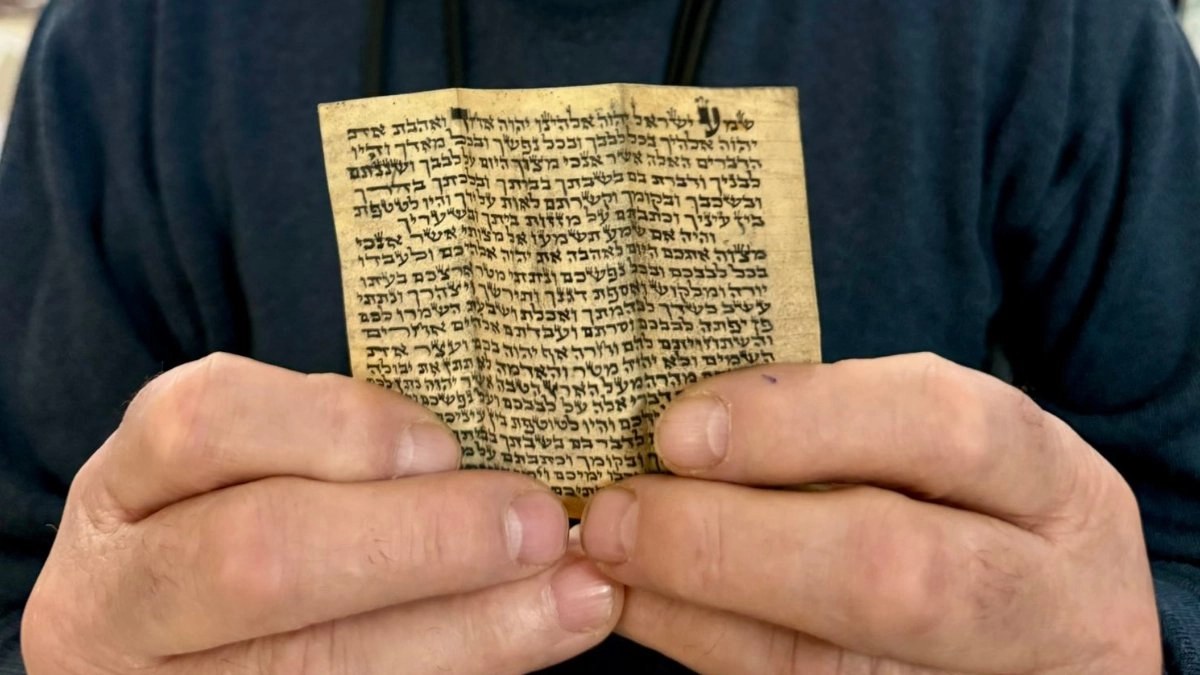 שמע ישראל יהוה אלהינו יהוה אחד ואהבת את
יהוה אלהיך בכל לבבך ובכל נפשך ובכל מאדך והיו
הדברים האלה אשר אנכי מצוך היום על לבבך ושננתם
לבניך ודברת בם בשבתך בביתך ובלכתך בדרך
ובשכבך ובקומך וקשרתם לאות על ידך והיו לטטפת
בין עיניך וכתבתם על מזזות ביתך ובשעריך
והיה אם שמע תשמעו אל מצותי אשר אנכי
מצוה אתכם היום לאהבה את יהוה אלהיכם ולעבדו
בכל לבבכם ובכל נפשכם ונתתי מטר ארצכם בעתו
יורה ומלקוש ואספת דגנך ותירשך ויצהרך ונתתי
עשב בשדך לבהמתך ואכלת ושבעת השמרו לכם
פן יפתה לבבכם וסרתם ועבדתם אלהים אחרים
והשתחויתם להם וחרה אף יהוה בכם ועצר את
השמים ולא יהיה מטר והאדמה תתן את יבולה
מהרה מעל הארץ הטבה יהוה נתן
דברי אלה על לבבכם
והיו לטוטפת בין עיניכם
לדבר בם בשבתך
ובקומך וכתבתם על
ימיכם וימי